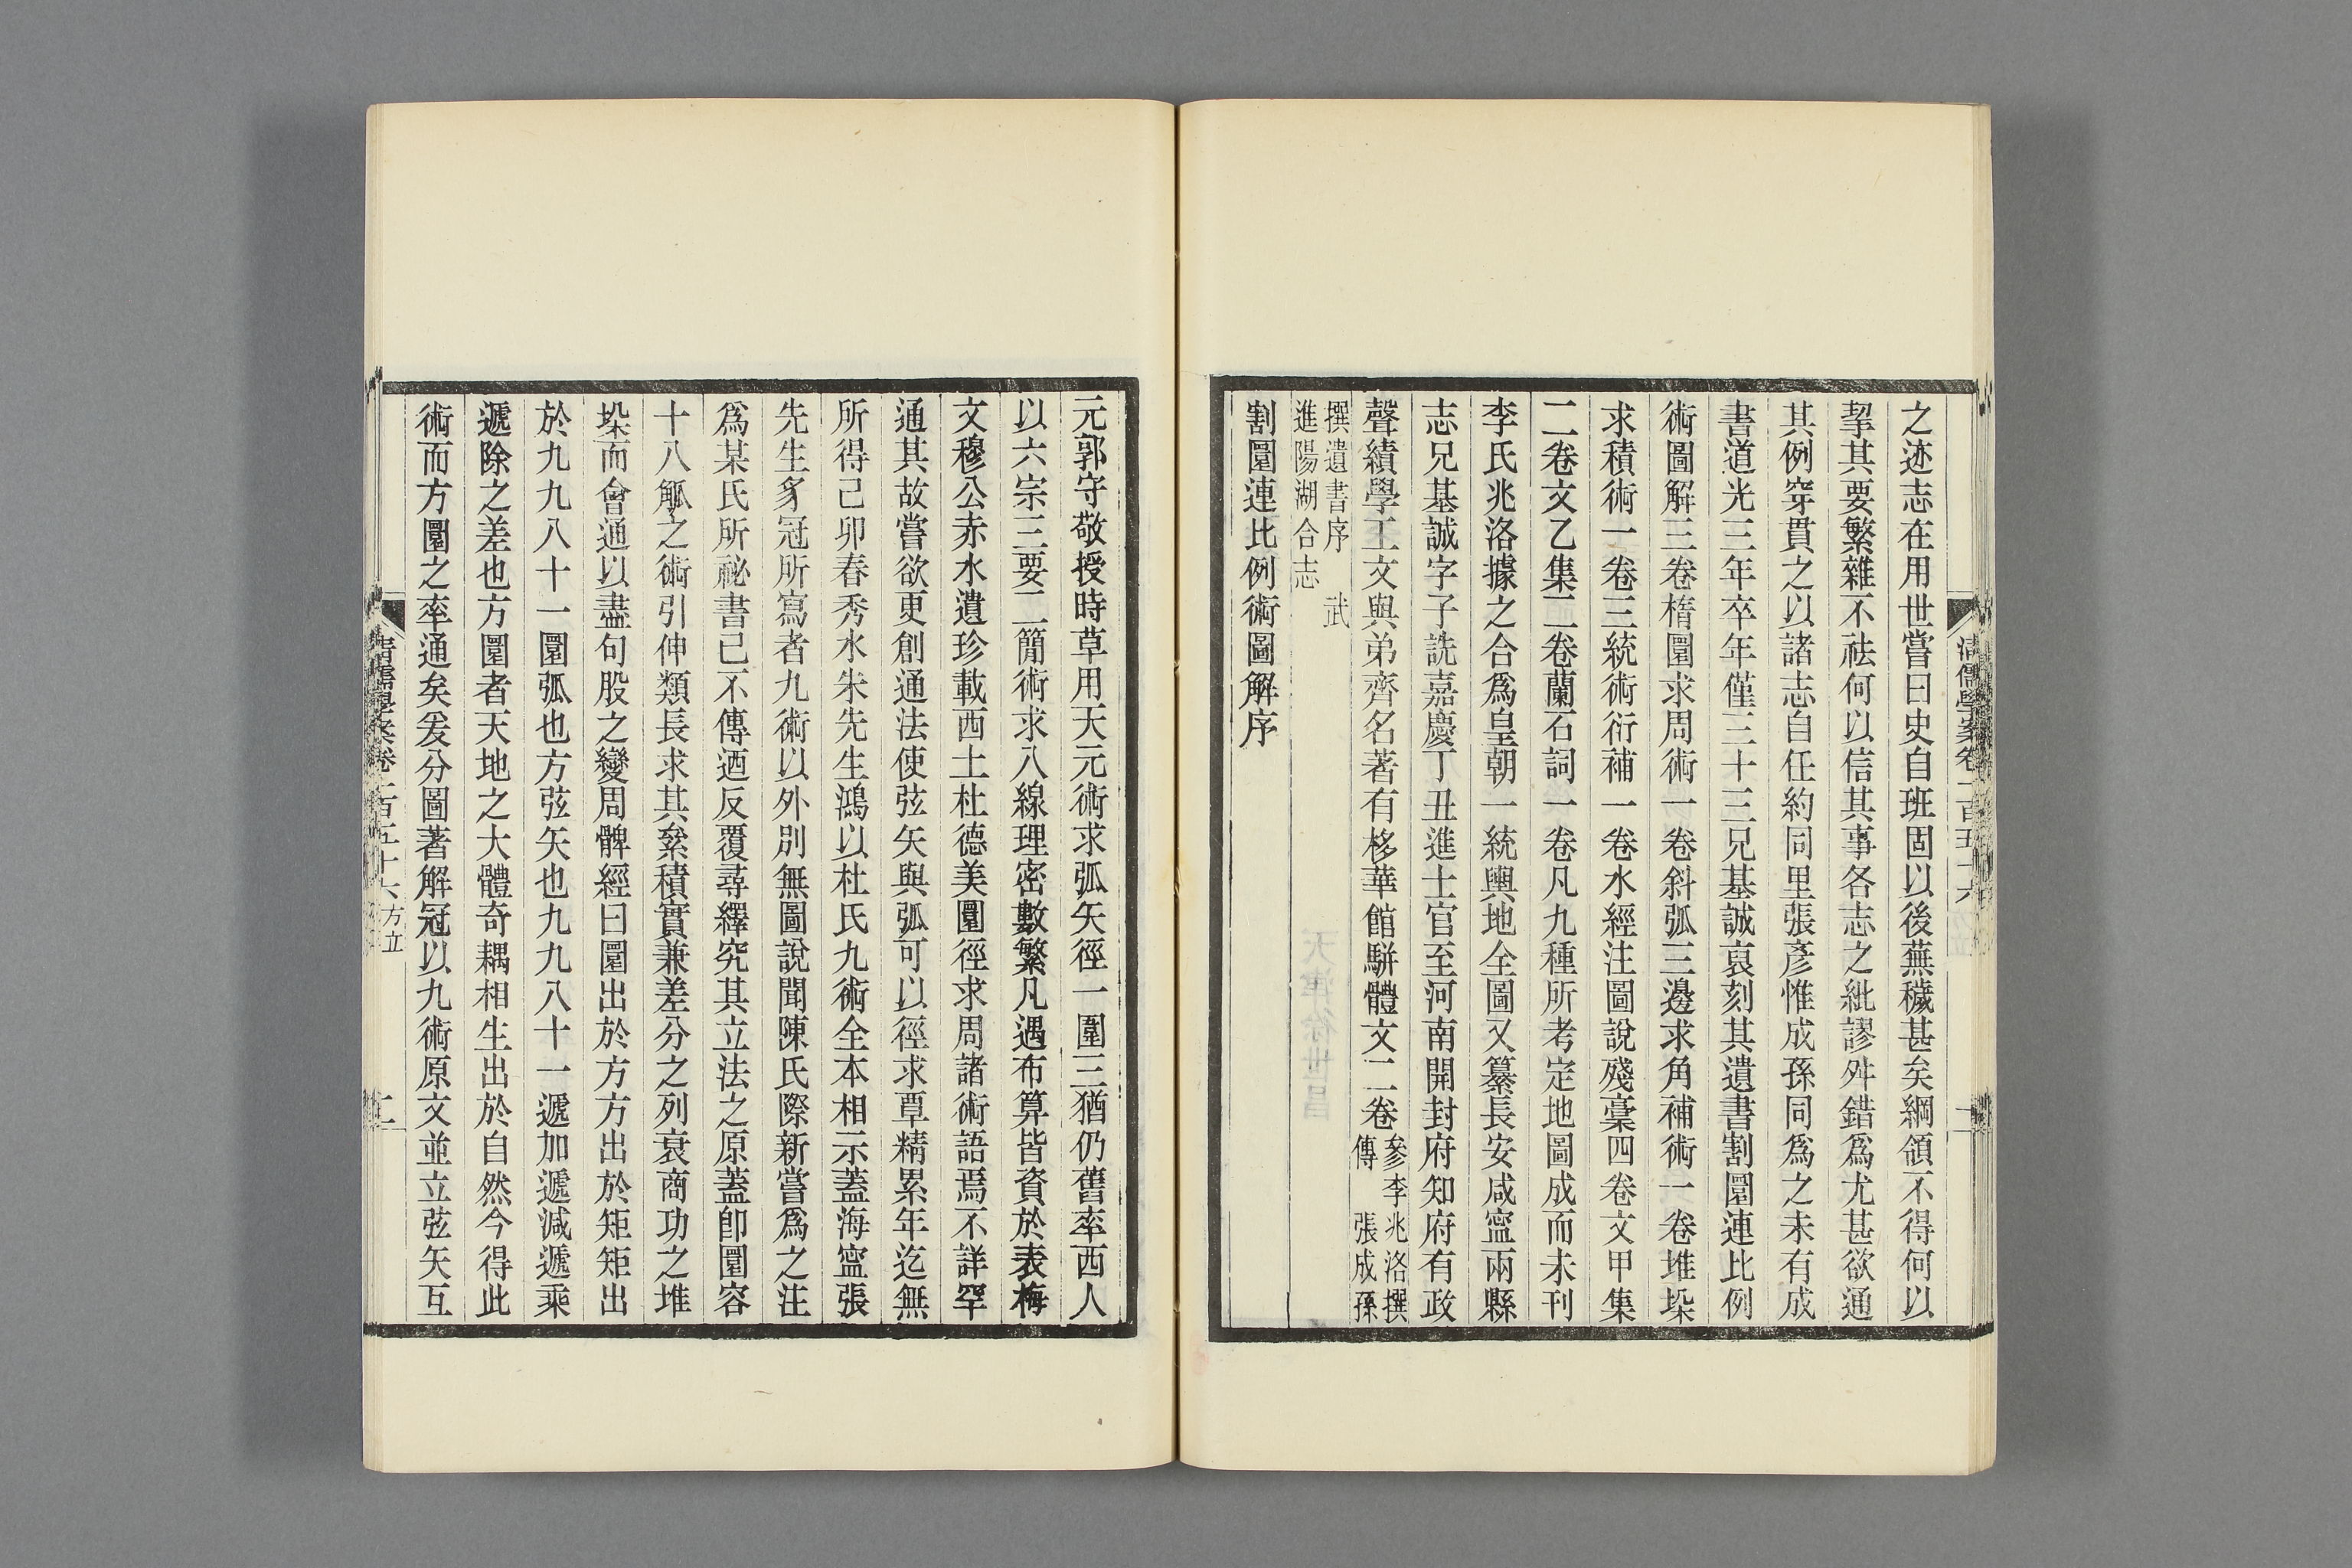 之迹志在用世嘗曰史自班固以後蕪穢甚矣綱領不得何以
挈其要繁雜不祛何以信其事各志之紕謬舛錯爲尤甚欲通
其例穿貫之以諸志自任約同里張彥惟成孫同爲之未有成
書道光三年卒年僅三十三兄基誠哀刻其遺書割圜連比例
術圖解三卷橢圜求周術一卷斜弧三邊求角補術一卷堆垛
求積術一卷三統術衍補一卷水經注圖說殘稾四卷文甲集
二卷文乙集二卷蘭石詞一卷凡九種所考定地圖成而未刊
李氏兆洛據之合爲皇朝一統輿地全圖又纂長安咸寧兩縣
志兄基誠字子詵嘉慶丁丑進士官至河南開封府知府有政
聲績學工文與弟齊名著有栘華館駢體文二卷參李兆洛撰傳 張成孫
撰遺書序 武
進陽湖合志
割圜連比例術圖解序
清儒學案卷一百五十六
元郭守敬授時草用天元術求弧矢徑一圍三猶仍舊率西人
以六宗三要二簡術求八線理密數繁凡遇布算皆資於表梅
文穆公赤水遺珍載西士杜德美圜徑求周諸術語焉不詳罕
通其故嘗欲更創通法使弦矢與弧可以徑求覃精累年迄無
所得己卯春秀水朱先生鴻以杜氏九術全本相示蓋海寧張
先生豸冠所寫者九術以外別無圖說聞陳氏際新嘗爲之注
爲某氏所祕書已不傳迺反覆尋繹究其立法之原蓋卽圜容
十八觚之術引伸類長求其絫積實兼差分之列衰商功之堆
垛而會通以盡句股之變周髀經曰圜出於方方出於矩矩出
於九九八十一圜弧也方弦矢也九九八十一遞加遞減遞乘
遞除之差也方圜者天地之大體奇耦相生出於自然今得此
術而方圜之率通矣爰分圖著解冠以九術原文並立弦矢互
清儒學案卷一百五十六 方立